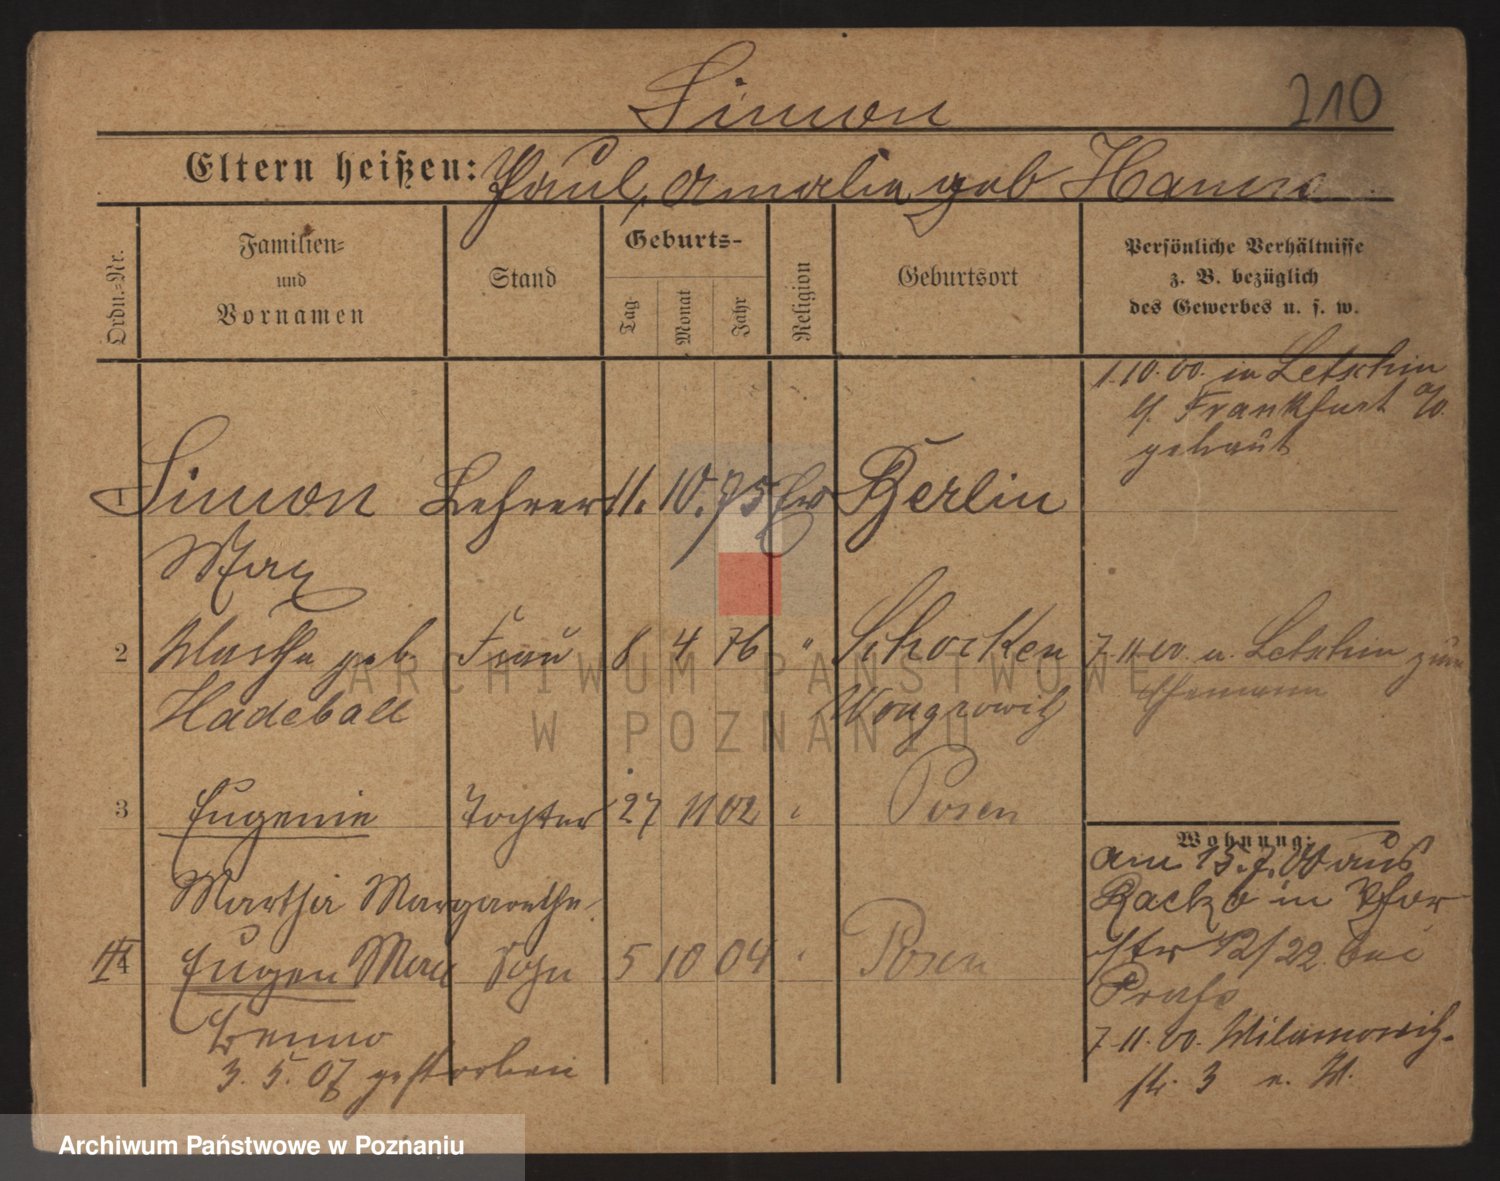 Simon
210
Eltern heißen: Paul, Amalie geb
Ordn.-Nr.
Familien-
und
Vornamen
Stand
Geburts-
Tag
Monat
Jahr
Religion
Geburtsort
Persönliche Verhältnisse
z. B. bezüglich
des Gewerbes u. s. w.
1.10.00. in Letschin
Frankfurt a/O.
getraut
1 Simon Lehrer 11. 10. 75 Ev Berlin
Max
2 Martha geb. Frau 8 4 76 " Schocken 7.11.00. v. Letschin zum
Hadeball Wongrowitz Ehemann
3 Eugenie Tochter 27 11 02 " Posen
Wohnung:
Martha Margarethe
am 15.7.00 aus
4 Eugen Max Sohn 5 10 04 " Posen
str 12/22 bei
Benno
3. 5. 07 gestorben
7.11.00. Wilamowitz-
str. 3
ARCHIWUM PAŃSTWOWE
W POZNANIU
Archiwum Państwowe w Poznaniu